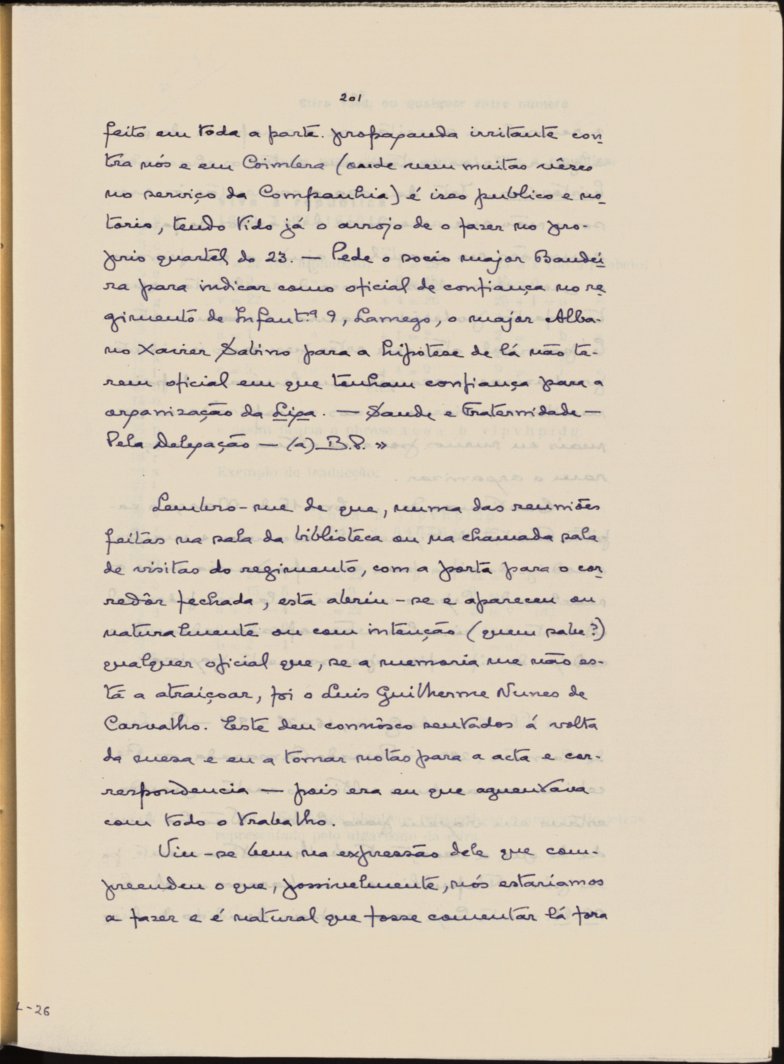 201
feito em toda a parte. propaganda irritante con-
tra nós e em Coimbra (onde vem muitas vêses
no serviço da Companhia) é isso publico e no-
torio, tendo tido já o arrojo de o fazer no pro-
prio quartel do 23. — Pede o socio major Bandei-
ra para indicar como oficial de confiança no re-
gimento de Infant.ª 9, Lamego, o major Alba-
no Xavier Sabino para a hipótese de lá não te-
rem oficial em que tenham confiança para a
organização da Liga. — Saude e Fraternidade —
Pela Delegação — (a) B.P. »
Lembro-me de que, numa das reuniões
feitas na sala da biblioteca ou na chamada sala
de visitas do regimento, com a porta para o cor-
redôr fechada, esta abriu-se e apareceu ou
naturalmente ou com intenção (quem sabe?)
qualquer oficial que, se a memoria me não es-
tá a atraiçoar, foi o Luis Guilherme Nunes de
Carvalho. Este deu connôsco sentados á volta
da mesa e eu a tomar notas para a acta e cor-
respondencia — pois era eu que aguentava
com todo o trabalho.
Viu-se bem na expressão dele que com-
preendeu o que, possivelmente, nós estariamos
a fazer e é natural que fosse comentar lá fora
L-26